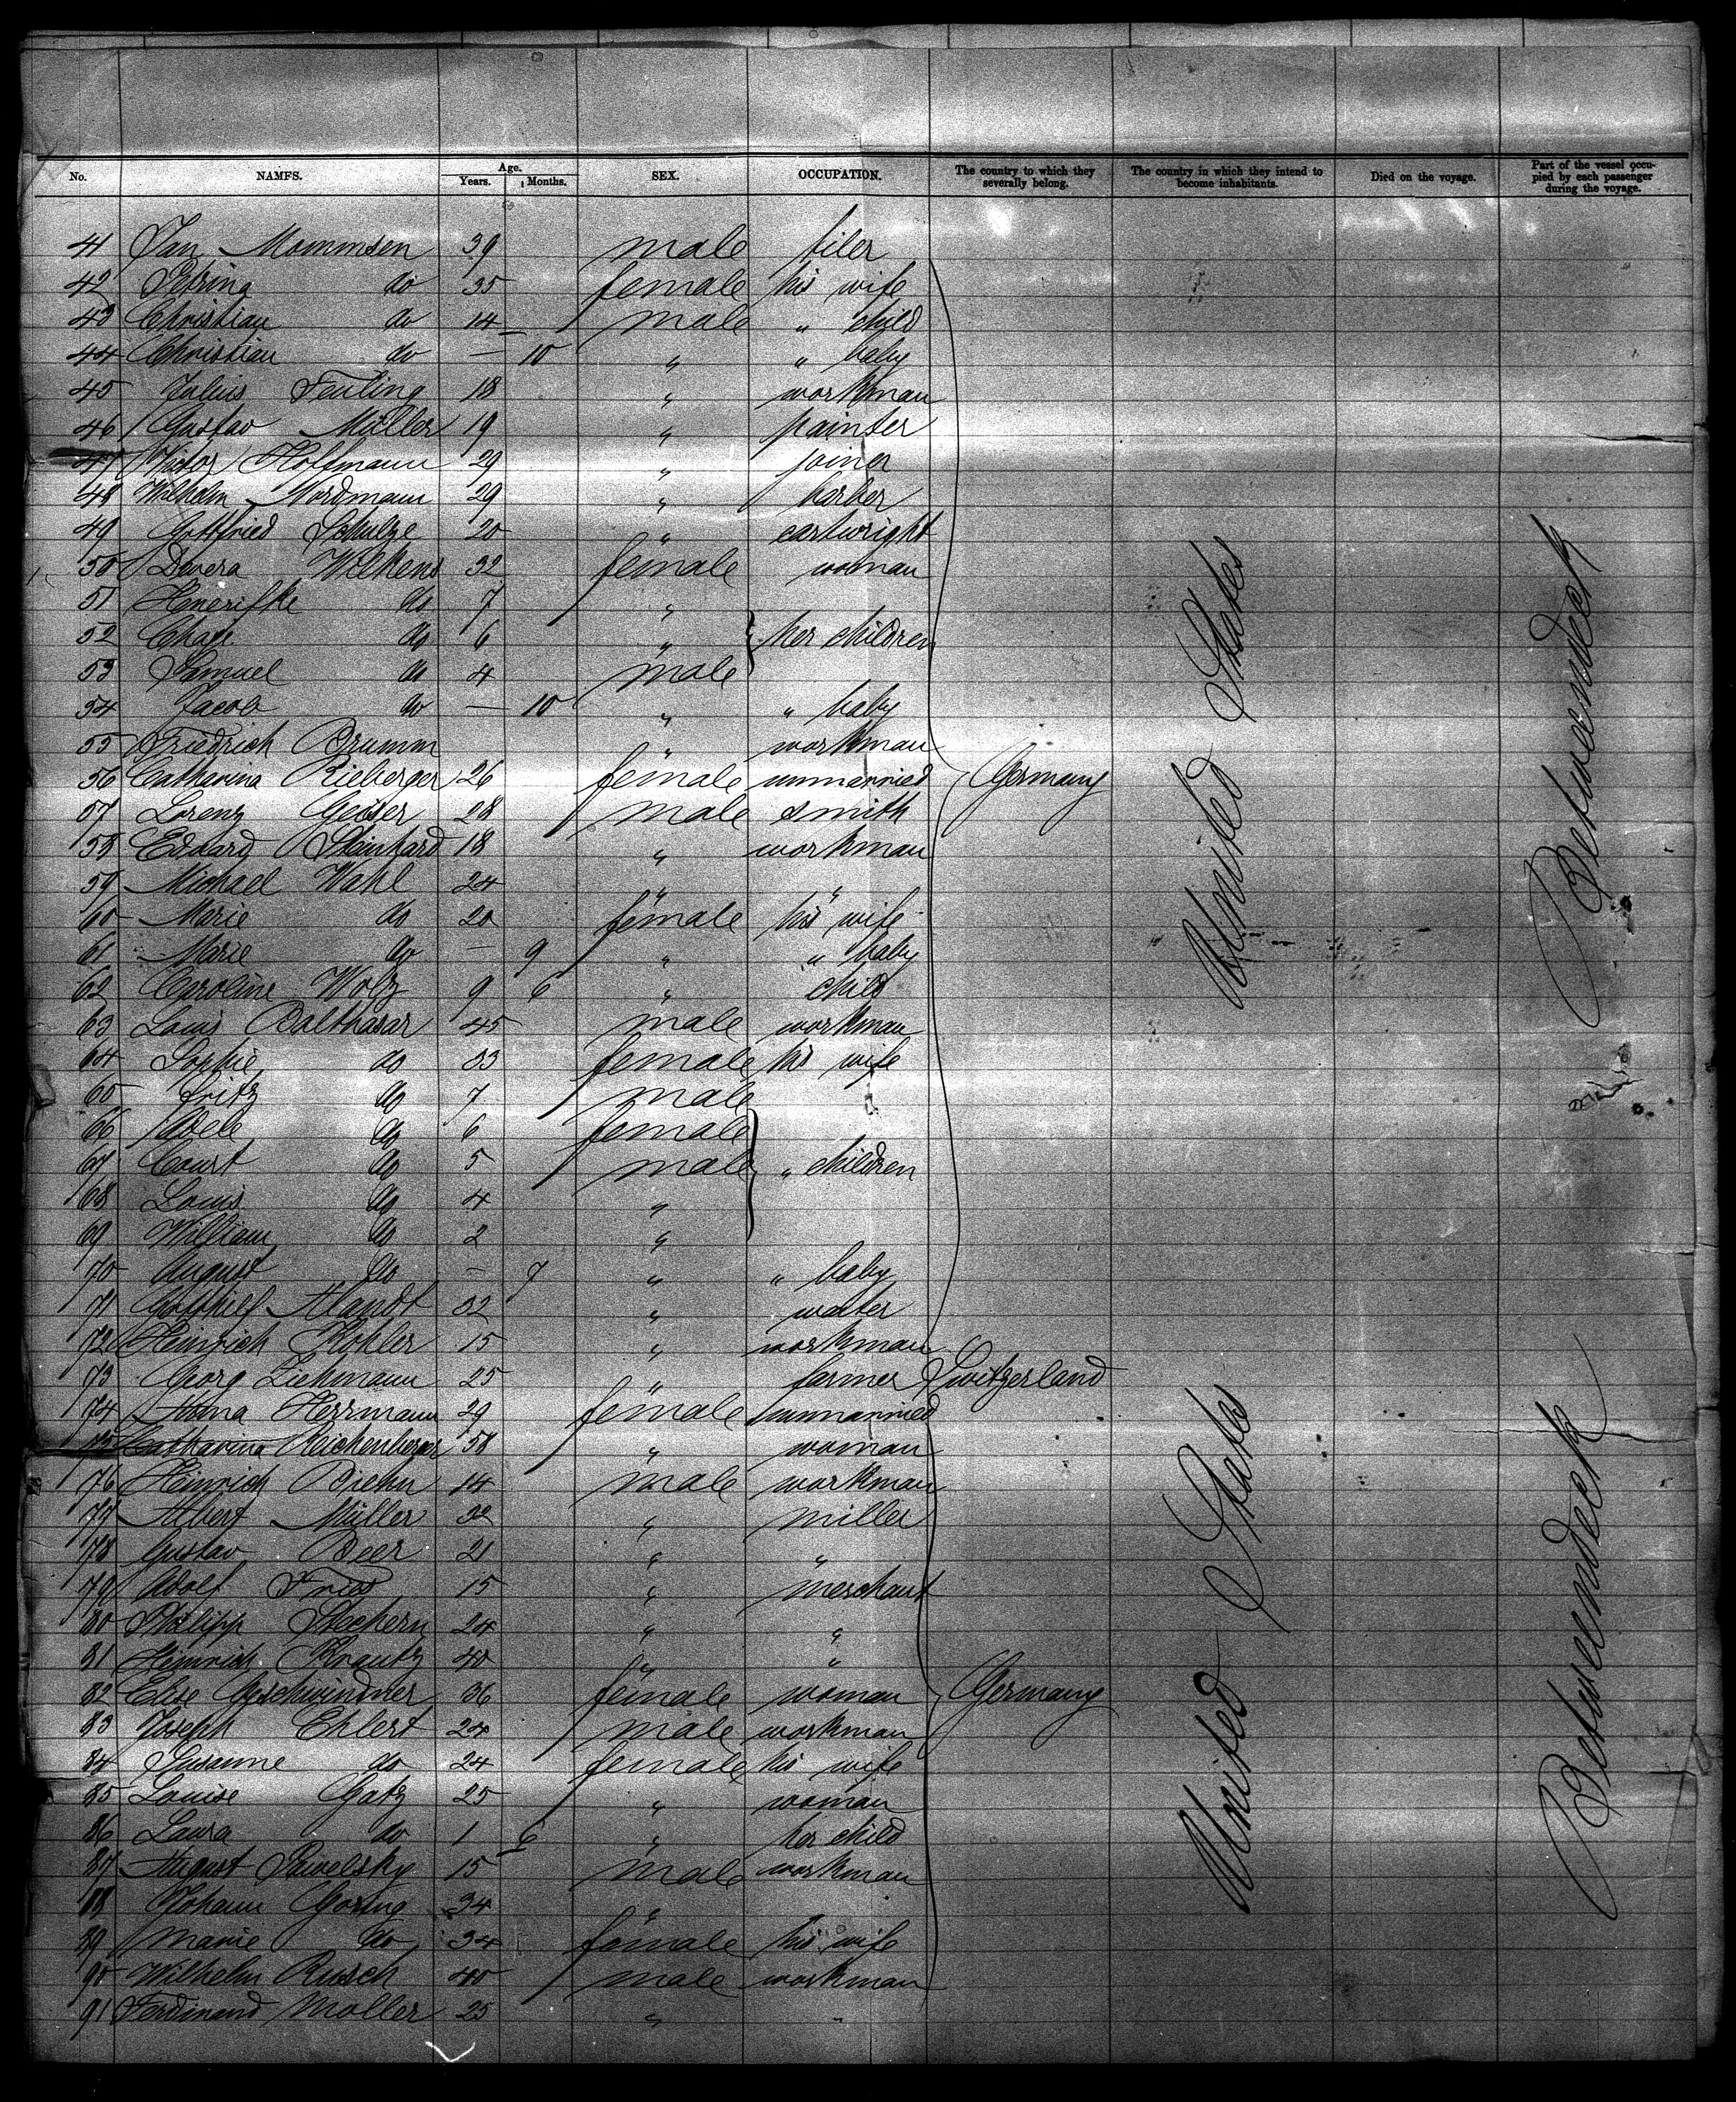 No. NAMES. Age. Years. Months. SEX. OCCUPATION. The country to which they severally belong. The country in which they intend to become inhabitants. Died on the voyage. Part of the vessel occupied by each passenger during the voyage.
41 Jan Mommsen 39 male tiler
42 do 35 female his wife
43 Christian do 14 male " child
44 Christian do — 10 " " baby
45 Julius Feuling 18 " workman
46 Gustav Müller 19 " painter
47 Victor Hoffmann 29 " joiner
48 Wilhelm Nordmann 29 " barber
49 Gottfried Schulze 20 " cartwright
50 Wilkens 32 female woman
51 do 7 "
52 do 6 " her children
53 Samuel do 4 male
54 Jacob do — 10 " " baby
55 Friedrich Brumm " workman
56 Catharina Rieberger 26 female unmarried Germany
57 Lorenz Geiser 28 male smith
58 Eduard Steinhard 18 " workman
59 Michael Wahl 24 " "
60 Marie do 20 female his wife
61 Marie do — 9 " " baby
62 Caroline Wolz 9 6 " child
63 Louis Balthasar 45 male workman
64 Sophie do 33 female his wife
65 Fritz do 7 male
66 Adele do 6 female
67 Court do 5 male " children
68 Louis do 4 "
69 William do 2 "
70 August do — 7 " " baby
71 Gotthilf Alandt 32 " waiter
72 Heinrich Kohler 15 " workman
73 Georg Ziehmann 25 " farmer Switzerland
74 Anna Herrmann 29 female unmarried
75 Catharina Reichenberger 58 " woman
76 Heinrich Biehn 14 male workman
77 Albert Müller 32 " miller
78 Gustav Beer 21 " "
79 Adolf Fries 15 " merchant
80 Philipp Stechern 24 " "
81 Heinrich Krautz 40 " "
82 Elise Gschwindner 36 female woman Germany
83 Joseph Ehlert 24 male workman
84 Susanne do 24 female his wife
85 Louise Gatz 25 " woman
86 Laura do 1 6 " her child
87 August Pawelsky 15 male workman
88 Johann Goring 34 "
89 Marie do 34 female his wife
90 Wilhelm Rusch 40 male workman
91 Ferdinand Moller 25 " "
United States
Betweendeck
United States
Betweendeck